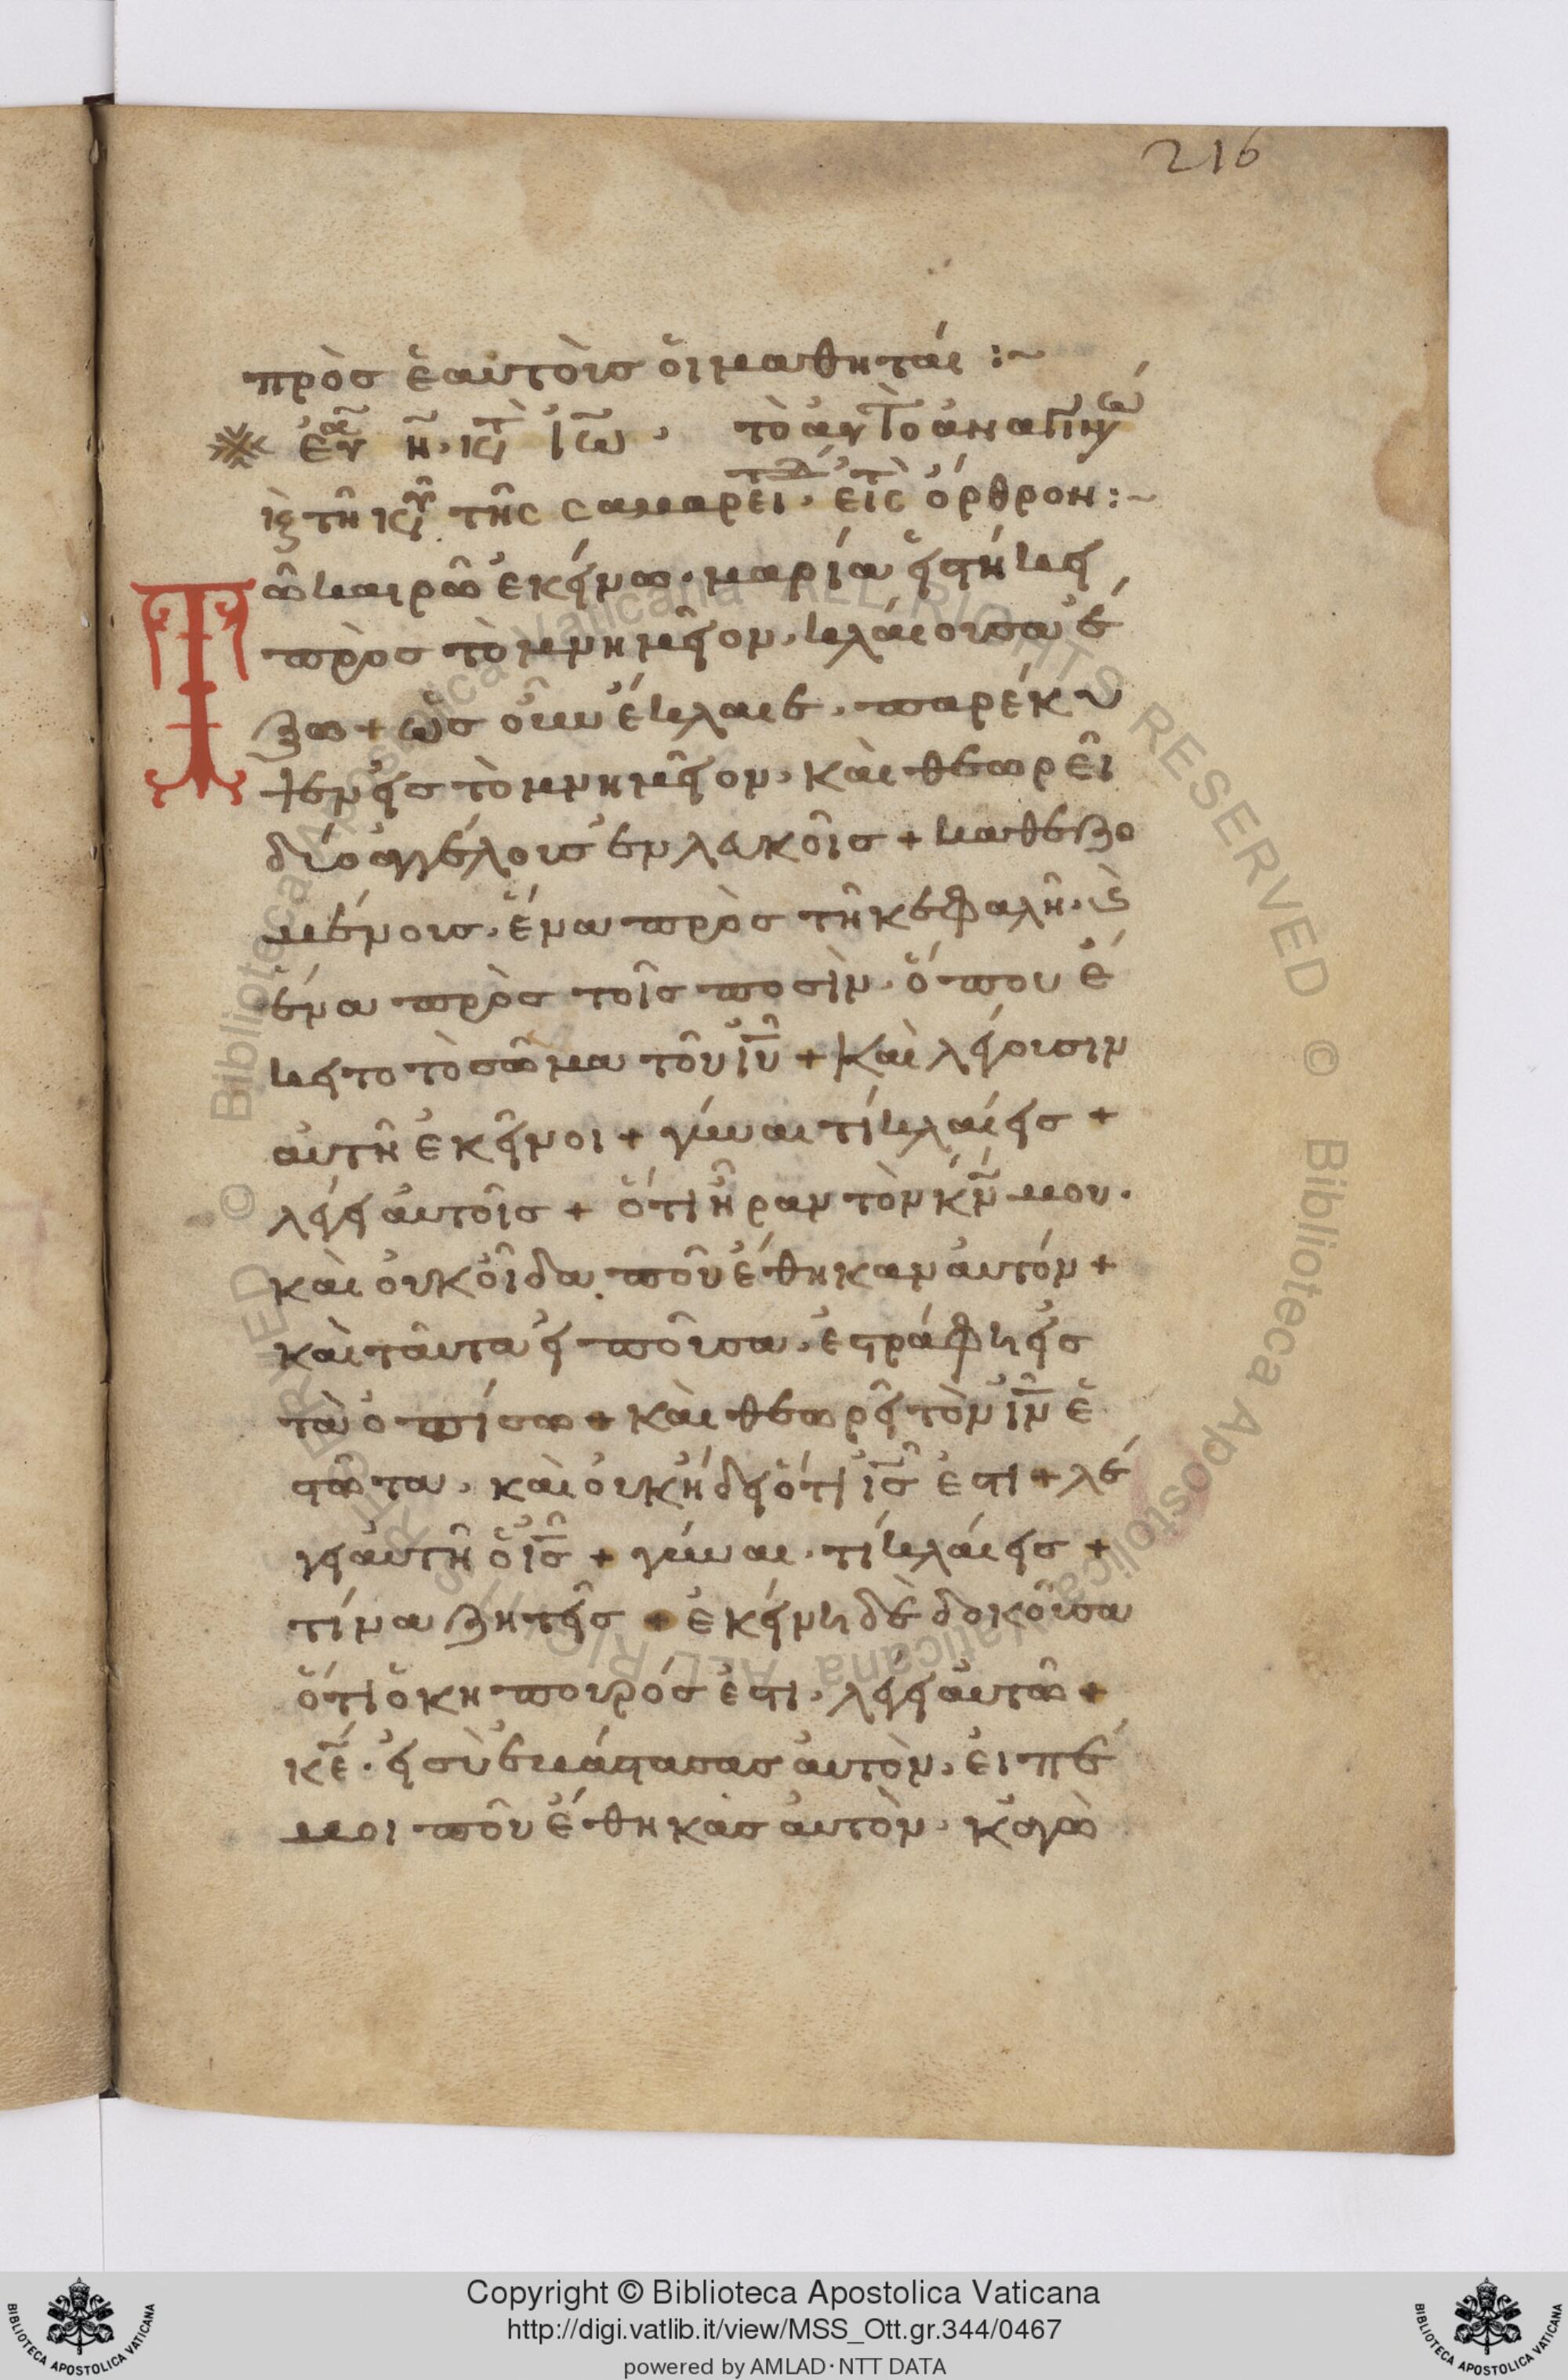 216
πρὸσ ἑαυτὸυσ ὁι μαθηται :~
※ ἐυ η. κτ ιω. τὸ ἀυτὸ ἀναγιν
τῆ κυ τῆς σαμαρεί. εἰς ὄρθρον :~
Τῶ καιρῶ ἐκείνω. μαρία ἑιστήκει
πρὸσ τὸ μνημεῖον. κλάιουσα ἔ
ξω + ὡσ οῦν ἔκλαιε. παρέκυ
ψεν ἐισ τὸ μνημεῖον. κὰι θεωρεῖ
δύο ἀγγέλουσ ἐν λευκοῖσ + καθεζο
μένουσ. ἕνα πρὸσ τῆ κεφαλῆ. κὲ
ἕνα πρὸσ τοῖσ ποσὶν. ὅπου ἔ
κειτο τὸ σῶμα τοῦ ιυ + Κὰι λέγουσιν
ἀυτῆ ἐκεῖνοι + γύναι τί κλαίεισ +
λέγει ἀυτοῖσ + ὅτι ἦραν τὸν κν μου.
κὰι ὀυκ οἶδα. ποῦ ἔθηκαν ἀυτόν +
κὰι ταῦτα ἐιποῦσα. ἐστράφη ἐισ
τὰ ὀπίσω + κὰι θεωρεῖ τὸν ιν ἑ
στῶτα. κὰι ὀυκ ἤδει ὅτι ισ ἐστι + λέ
γει ἀυτῆ ὁ ισ + γύναι. τί κλάιεισ +
τίνα ζητεῖσ + ἐκείνη δὲ δοκοῦσα
ὅτι ὁ κηπουρόσ ἐστι. λέγει ἀυτῶ +
κε. ἐι σὺ ἐβάστασασ ἀυτὸν. ἐιπέ
μοι ποῦ ἔθηκασ ἀυτὸν. κἀγὼ
Copyright © Biblioteca Apostolica Vaticana
http://digi.vatlib.it/view/MSS_Ott.gr.344/0467
powered by AMLAD·NTT DATA
BIBLIOTECA APOSTOLICA VATICANA
BIBLIOTECA APOSTOLICA VATICANA